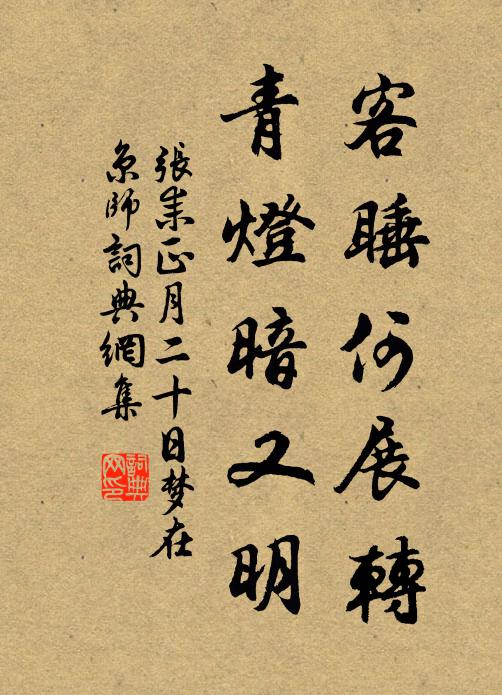 客睡何展轉
青燈暗又明
張耒正月二十日梦在
京師詞典網集
詞典
网印